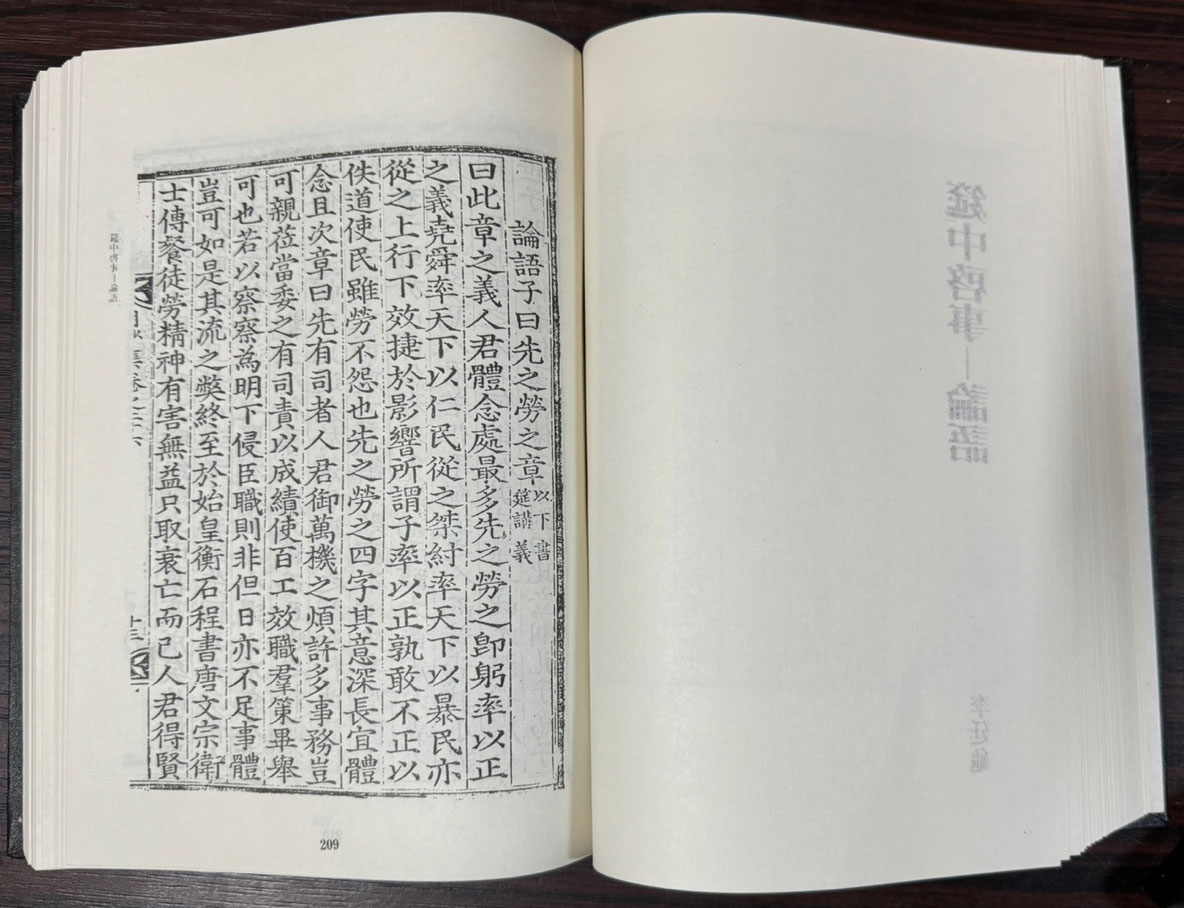 論語子曰先之勞之章以下書筵講義
曰此章之義人君體念處最多先之勞之卽躬率以正
之義堯舜率天下以仁民從之桀紂率天下以暴民亦
從之上行下效捷於影響所謂子率以正孰敢不正以
佚道使民雖勞不怨也先之勞之四字其意深長宜體
念且次章曰先有司者人君御萬機之煩許多事務豈
可親莅當委之有司責以成績使百工效職羣策畢舉
可也若以察察為明下侵臣職則非但日亦不足事體
豈可如是其流之獘終至於始皇衡石程書唐文宗衛
士傳餐徒勞精神有害無益只取衰亡而已人君得賢
十三
筵中啓事－論語
209
筵中啓事－論語
李廷龜